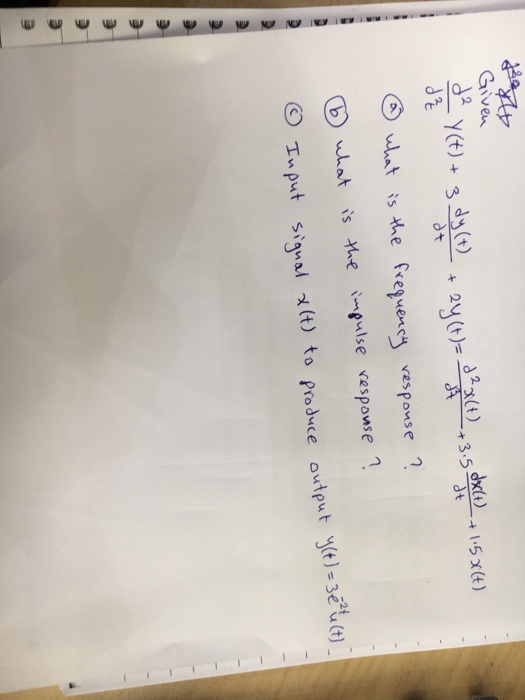 Given
d²/d²t y(t) + 3 dy(t)/dt + 2y(t) = d²x(t)/d²t + 3.5 dx(t)/dt + 1.5 x(t)
(a) what is the frequency response ?
(b) what is the impulse response ?
(c) Input signal x(t) to produce output y(t) = 3e^-2t u(t)